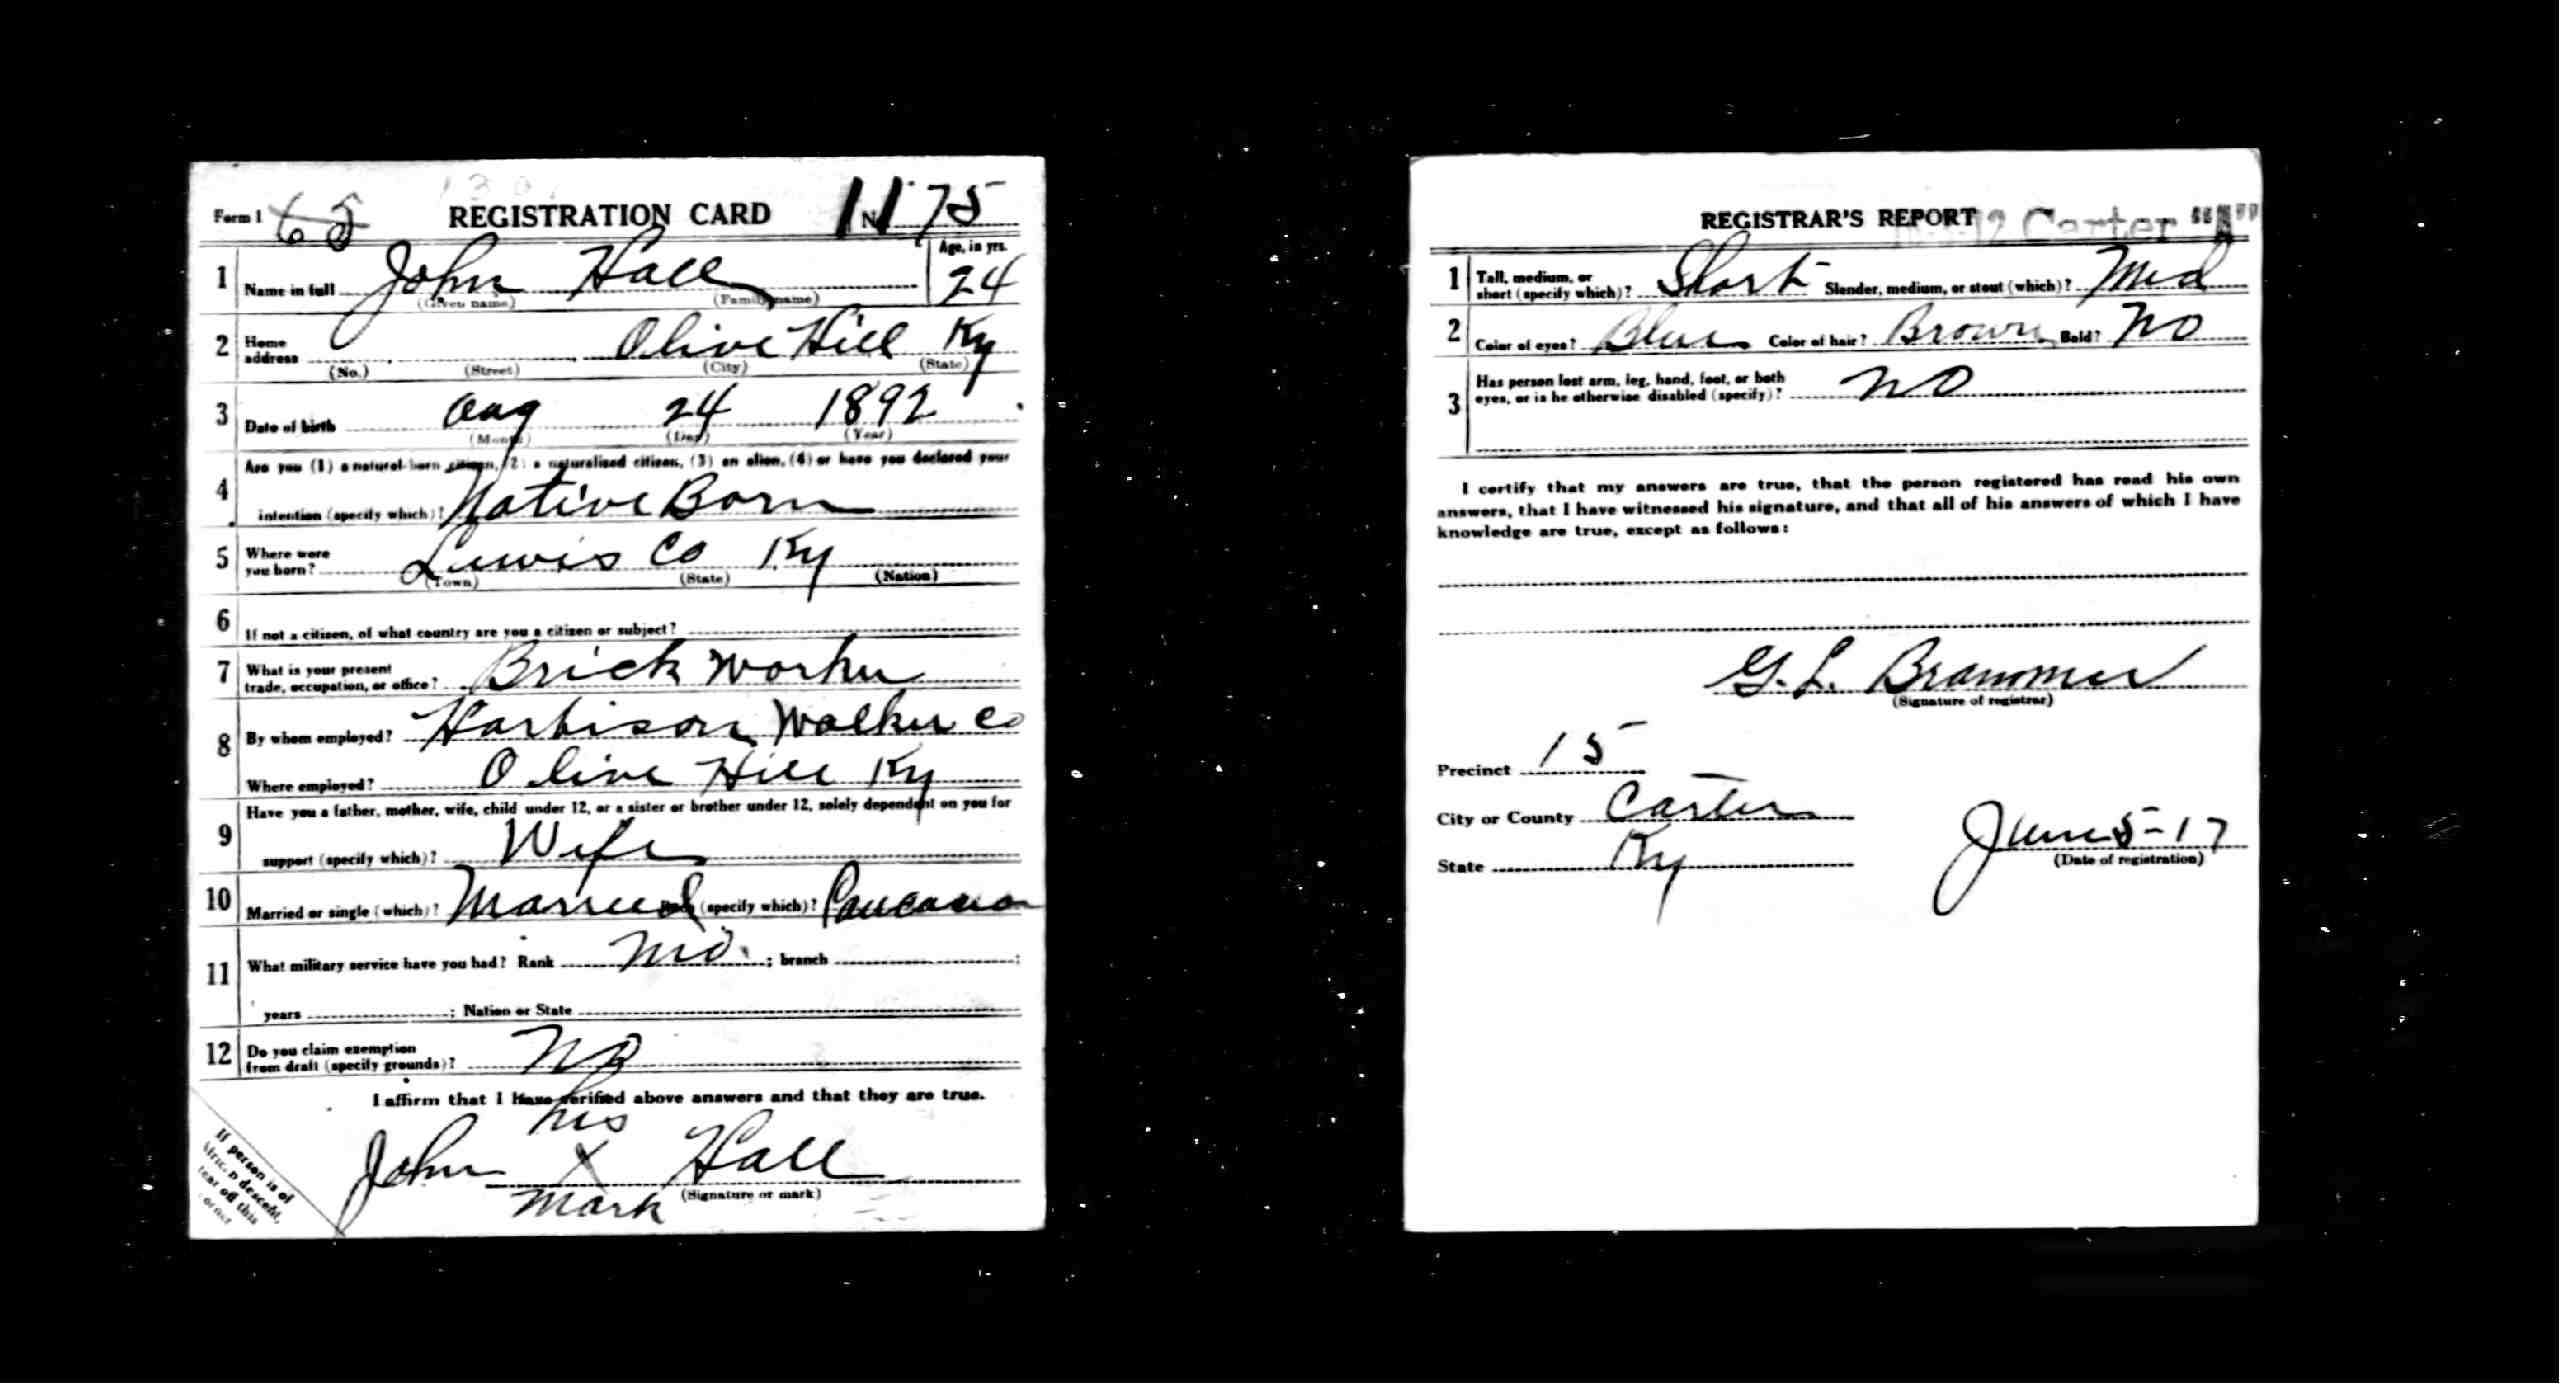 Form 1 65 REGISTRATION CARD No. 1175
1 Name in full John Hall Age, in yrs. 24
(Given name) (Family name)
2 Home address Olive Hill Ky
(No.) (Street) (City) (State)
3 Date of birth Aug 24 1892
(Month) (Day) (Year)
4 Are you (1) a natural-born citizen, (2) a naturalized citizen, (3) an alien, (4) or have you declared your
intention (specify which)? Native Born
5 Where were you born? Lewis Co Ky
(Town) (State) (Nation)
6 If not a citizen, of what country are you a citizen or subject?
7 What is your present trade, occupation, or office? Brick Worker
8 By whom employed? Harbison Walker Co
Where employed? Olive Hill Ky
9 Have you a father, mother, wife, child under 12, or a sister or brother under 12, solely dependent on you for
support (specify which)? Wife
10 Married or single (which)? Married Race (specify which)? Caucasian
11 What military service have you had? Rank No ; branch ;
years ; Nation or State
12 Do you claim exemption from draft (specify grounds)? No
I affirm that I have verified above answers and that they are true.
his
John X Hall
(Signature or mark)
mark
If person is of
African descent,
tear off this
corner
REGISTRAR'S REPORT 12 Carter "A"
1 Tall, medium, or short (specify which)? Short Slender, medium, or stout (which)? Med
2 Color of eyes? Blue Color of hair? Brown Bald? No
3 Has person lost arm, leg, hand, foot, or both eyes, or is he otherwise disabled (specify)? No
I certify that my answers are true, that the person registered has read his own
answers, that I have witnessed his signature, and that all of his answers of which I have
knowledge are true, except as follows:
G. L. Brammer
(Signature of registrar)
Precinct 15
City or County Carter
State Ky
June 5-17
(Date of registration)